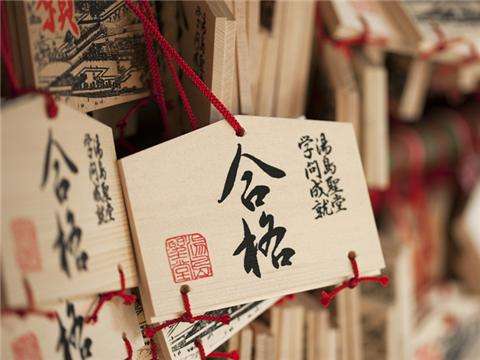 湯島聖堂
学問成就
合格
湯島
聖堂
湯島聖堂
学問成就
合格
合格